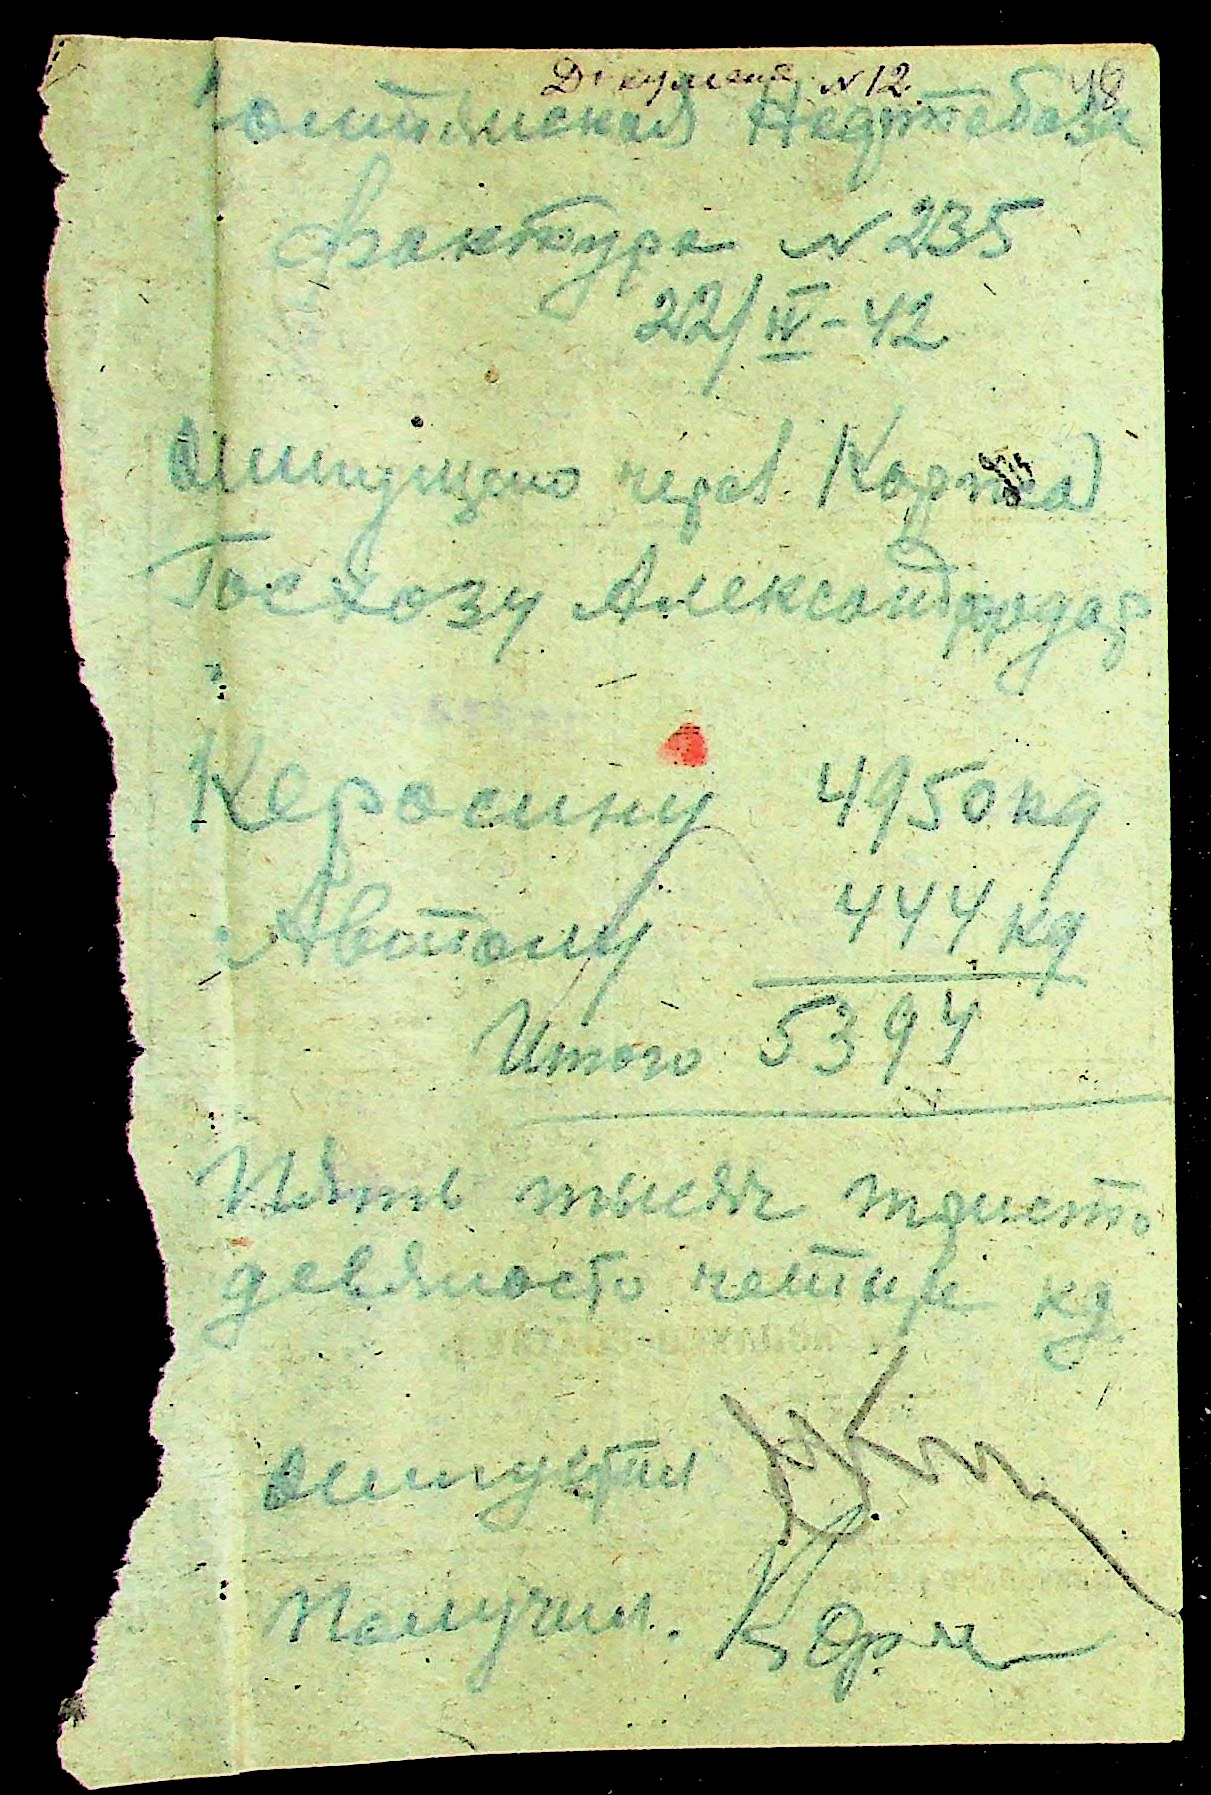 Документ N 12. 48
Нефтебаза
Фактура N 235
22/IV-42
Отпущено через
Госхозу Александродар
Керосину 4950 кг
Автолу 444 кг
Итого 5394
Пять тысяч триста
девяносто четыре кг
Отпустил
Получил.